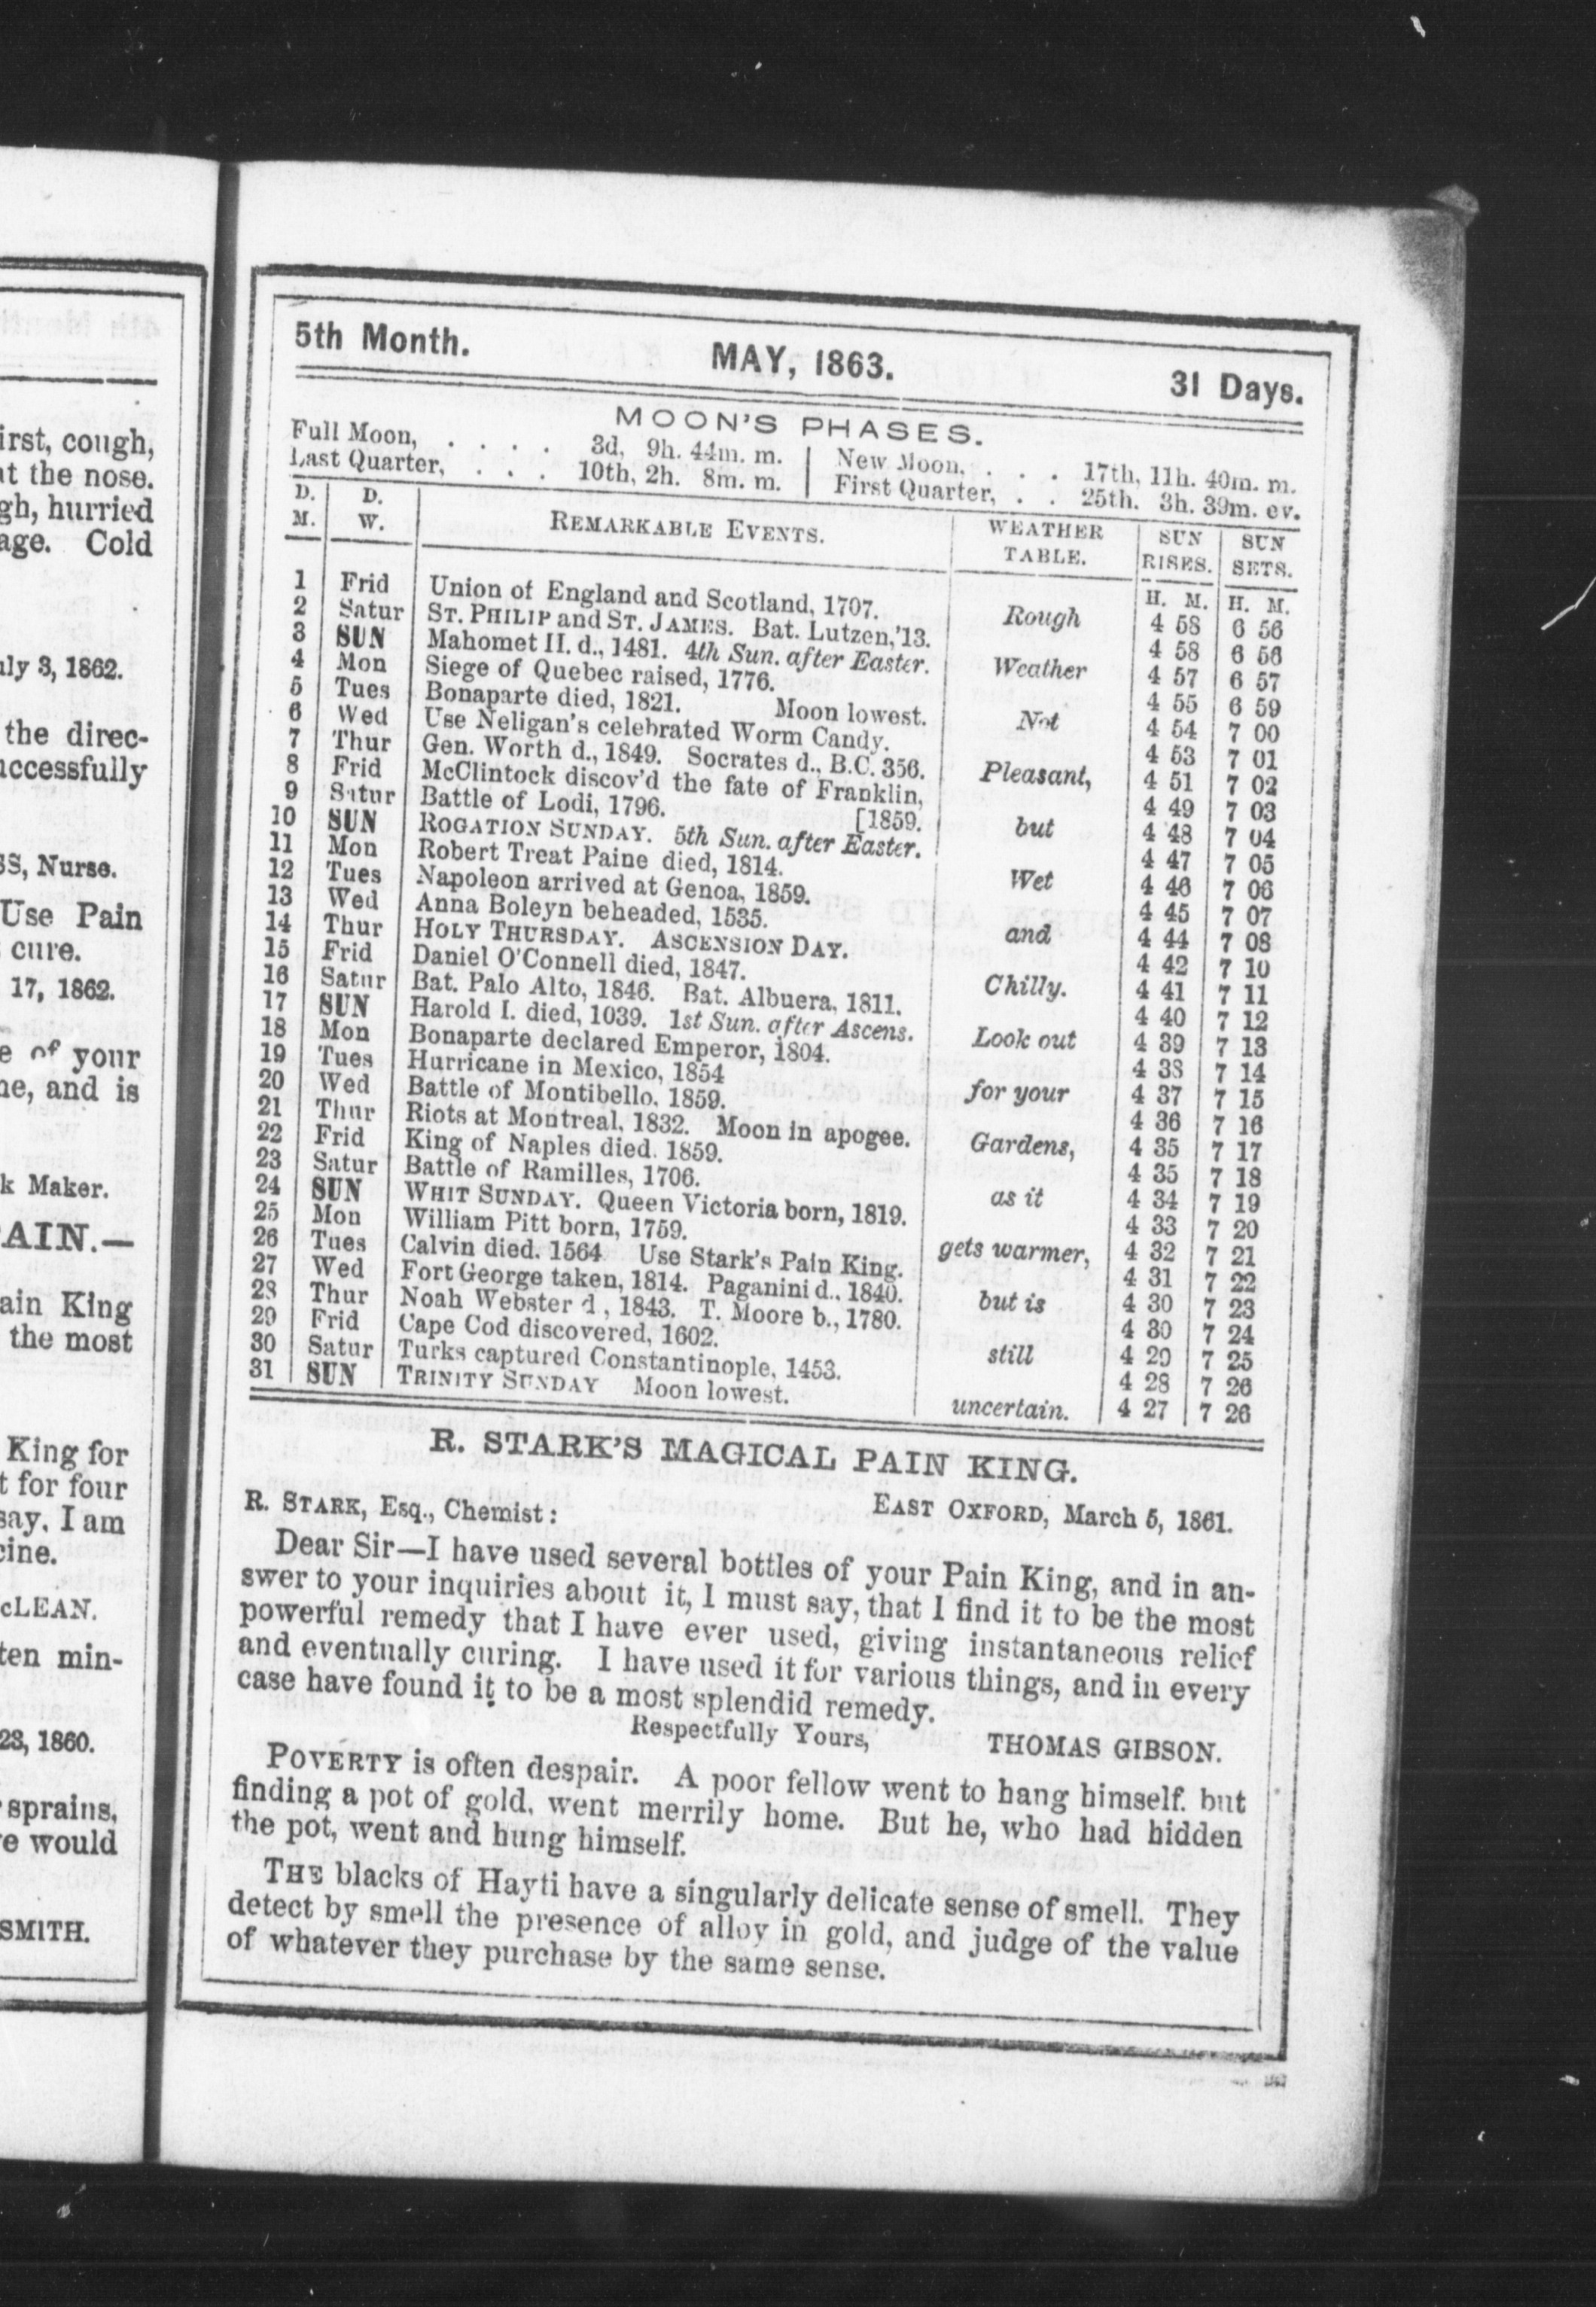 irst, cough,
at the nose.
gh, hurried
age. Cold
uly 3, 1862.
the direc-
uccessfully
SS, Nurse.
Use Pain
cure.
17, 1862.
e of your
ne, and is
k Maker.
PAIN.—
ain King
the most
King for
t for four
say, I am
cine.
cLEAN.
ten min-
23, 1860.
sprains,
e would
SMITH.
5th Month. MAY, 1863. 31 Days.
MOON'S PHASES.
Full Moon, . . . . 3d, 9h. 44m. m. New Moon, . . . 17th, 11h. 40m. m.
Last Quarter, . . . 10th, 2h. 8m. m. First Quarter, . . 25th. 3h. 39m. ev.
D. M. D. W. REMARKABLE EVENTS. WEATHER TABLE. SUN RISES. SUN SETS.
H. M. H. M.
1 Frid Union of England and Scotland, 1707. Rough 4 58 6 56
2 Satur ST. PHILIP and ST. JAMES. Bat. Lutzen,'13. 4 58 6 56
3 SUN Mahomet II. d., 1481. 4th Sun. after Easter. Weather 4 57 6 57
4 Mon Siege of Quebec raised, 1776. 4 55 6 59
5 Tues Bonaparte died, 1821. Moon lowest. Not 4 54 7 00
6 Wed Use Neligan's celebrated Worm Candy. 4 53 7 01
7 Thur Gen. Worth d., 1849. Socrates d., B.C. 356. Pleasant, 4 51 7 02
8 Frid McClintock discov'd the fate of Franklin, 4 49 7 03
9 Satur Battle of Lodi, 1796. [1859. but 4 48 7 04
10 SUN ROGATION SUNDAY. 5th Sun. after Easter. 4 47 7 05
11 Mon Robert Treat Paine died, 1814. Wet 4 46 7 06
12 Tues Napoleon arrived at Genoa, 1859. 4 45 7 07
13 Wed Anna Boleyn beheaded, 1535. and 4 44 7 08
14 Thur HOLY THURSDAY. ASCENSION DAY. 4 42 7 10
15 Frid Daniel O'Connell died, 1847. Chilly. 4 41 7 11
16 Satur Bat. Palo Alto, 1846. Bat. Albuera, 1811. 4 40 7 12
17 SUN Harold I. died, 1039. 1st Sun. after Ascens. Look out 4 39 7 13
18 Mon Bonaparte declared Emperor, 1804. 4 38 7 14
19 Tues Hurricane in Mexico, 1854 for your 4 37 7 15
20 Wed Battle of Montibello, 1859. 4 36 7 16
21 Thur Riots at Montreal, 1832. Moon in apogee. Gardens, 4 35 7 17
22 Frid King of Naples died. 1859. 4 35 7 18
23 Satur Battle of Ramilles, 1706. as it 4 34 7 19
24 SUN WHIT SUNDAY. Queen Victoria born, 1819. 4 33 7 20
25 Mon William Pitt born, 1759. gets warmer, 4 32 7 21
26 Tues Calvin died. 1564 Use Stark's Pain King. 4 31 7 22
27 Wed Fort George taken, 1814. Paganini d., 1840. but is 4 30 7 23
28 Thur Noah Webster d, 1843. T. Moore b., 1780. 4 30 7 24
29 Frid Cape Cod discovered, 1602. still 4 29 7 25
30 Satur Turks captured Constantinople, 1453. 4 28 7 26
31 SUN TRINITY SUNDAY Moon lowest. uncertain. 4 27 7 26
R. STARK'S MAGICAL PAIN KING.
EAST OXFORD, March 5, 1861.
R. STARK, Esq., Chemist:
Dear Sir—I have used several bottles of your Pain King, and in an-
swer to your inquiries about it, I must say, that I find it to be the most
powerful remedy that I have ever used, giving instantaneous relief
and eventually curing. I have used it for various things, and in every
case have found it to be a most splendid remedy.
Respectfully Yours, THOMAS GIBSON.
POVERTY is often despair. A poor fellow went to hang himself. but
finding a pot of gold, went merrily home. But he, who had hidden
the pot, went and hung himself.
THE blacks of Hayti have a singularly delicate sense of smell. They
detect by smell the presence of alloy in gold, and judge of the value
of whatever they purchase by the same sense.